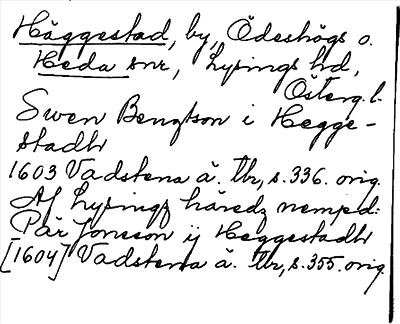 Häggestad, by, Ödeshögs o.
Heda snr, Lysings hd,
Österg.l.
Swen Bengtson i Hegge-
stadh
1603 Vadstena ä. tb, s. 336. orig.
Af Lysingz häredz nempd:
Pär Jonsson ij Heggestadh
[1604] Vadstena ä. tb, s. 355. orig.